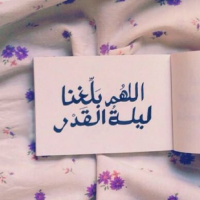 اللهم بَلِّغنا
ليلةُ القَدَر